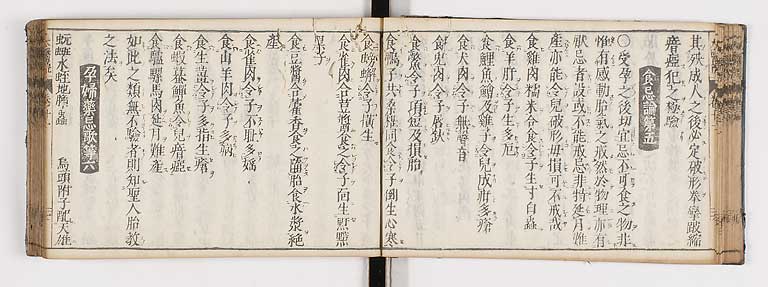 其殃成人之後必定破形拳攣跛縮
瘖瘂犯之極驗
食忌論第五
〇受孕之後切宜忌不可食之物非
惟有感動胎氣之戒然於物理亦有
厭忌者設或不能戒忌非特延月難
產亦能令兒破形母損可不戒哉
食雞肉糯米合食令子生寸白蟲
食羊肝令子生多厄
食鯉魚鱠及雞子令兒成疳多瘡
食犬肉令子無聲音
食兎肉令子唇缺
食鱉令子項短及損胎
食鴨子共桑椹同食令子倒生心寒
食螃蠏令子橫生
食雀肉合豆醬食之令子面生䵟黯
黑子
食豆醬合藿香食之墮胎食水漿絕
產
食雀肉令子不恥多婬
食山羊肉令子多病
食生薑令子多指生瘡
食蝦蟇鱓魚令兒瘖瘂
食驢騾馬肉延月難產
如此之類無不驗者則知聖人胎教
之法矣
孕婦藥忌歌第六
蚖蝥水蛭地膽蟲 烏頭附子配天雄